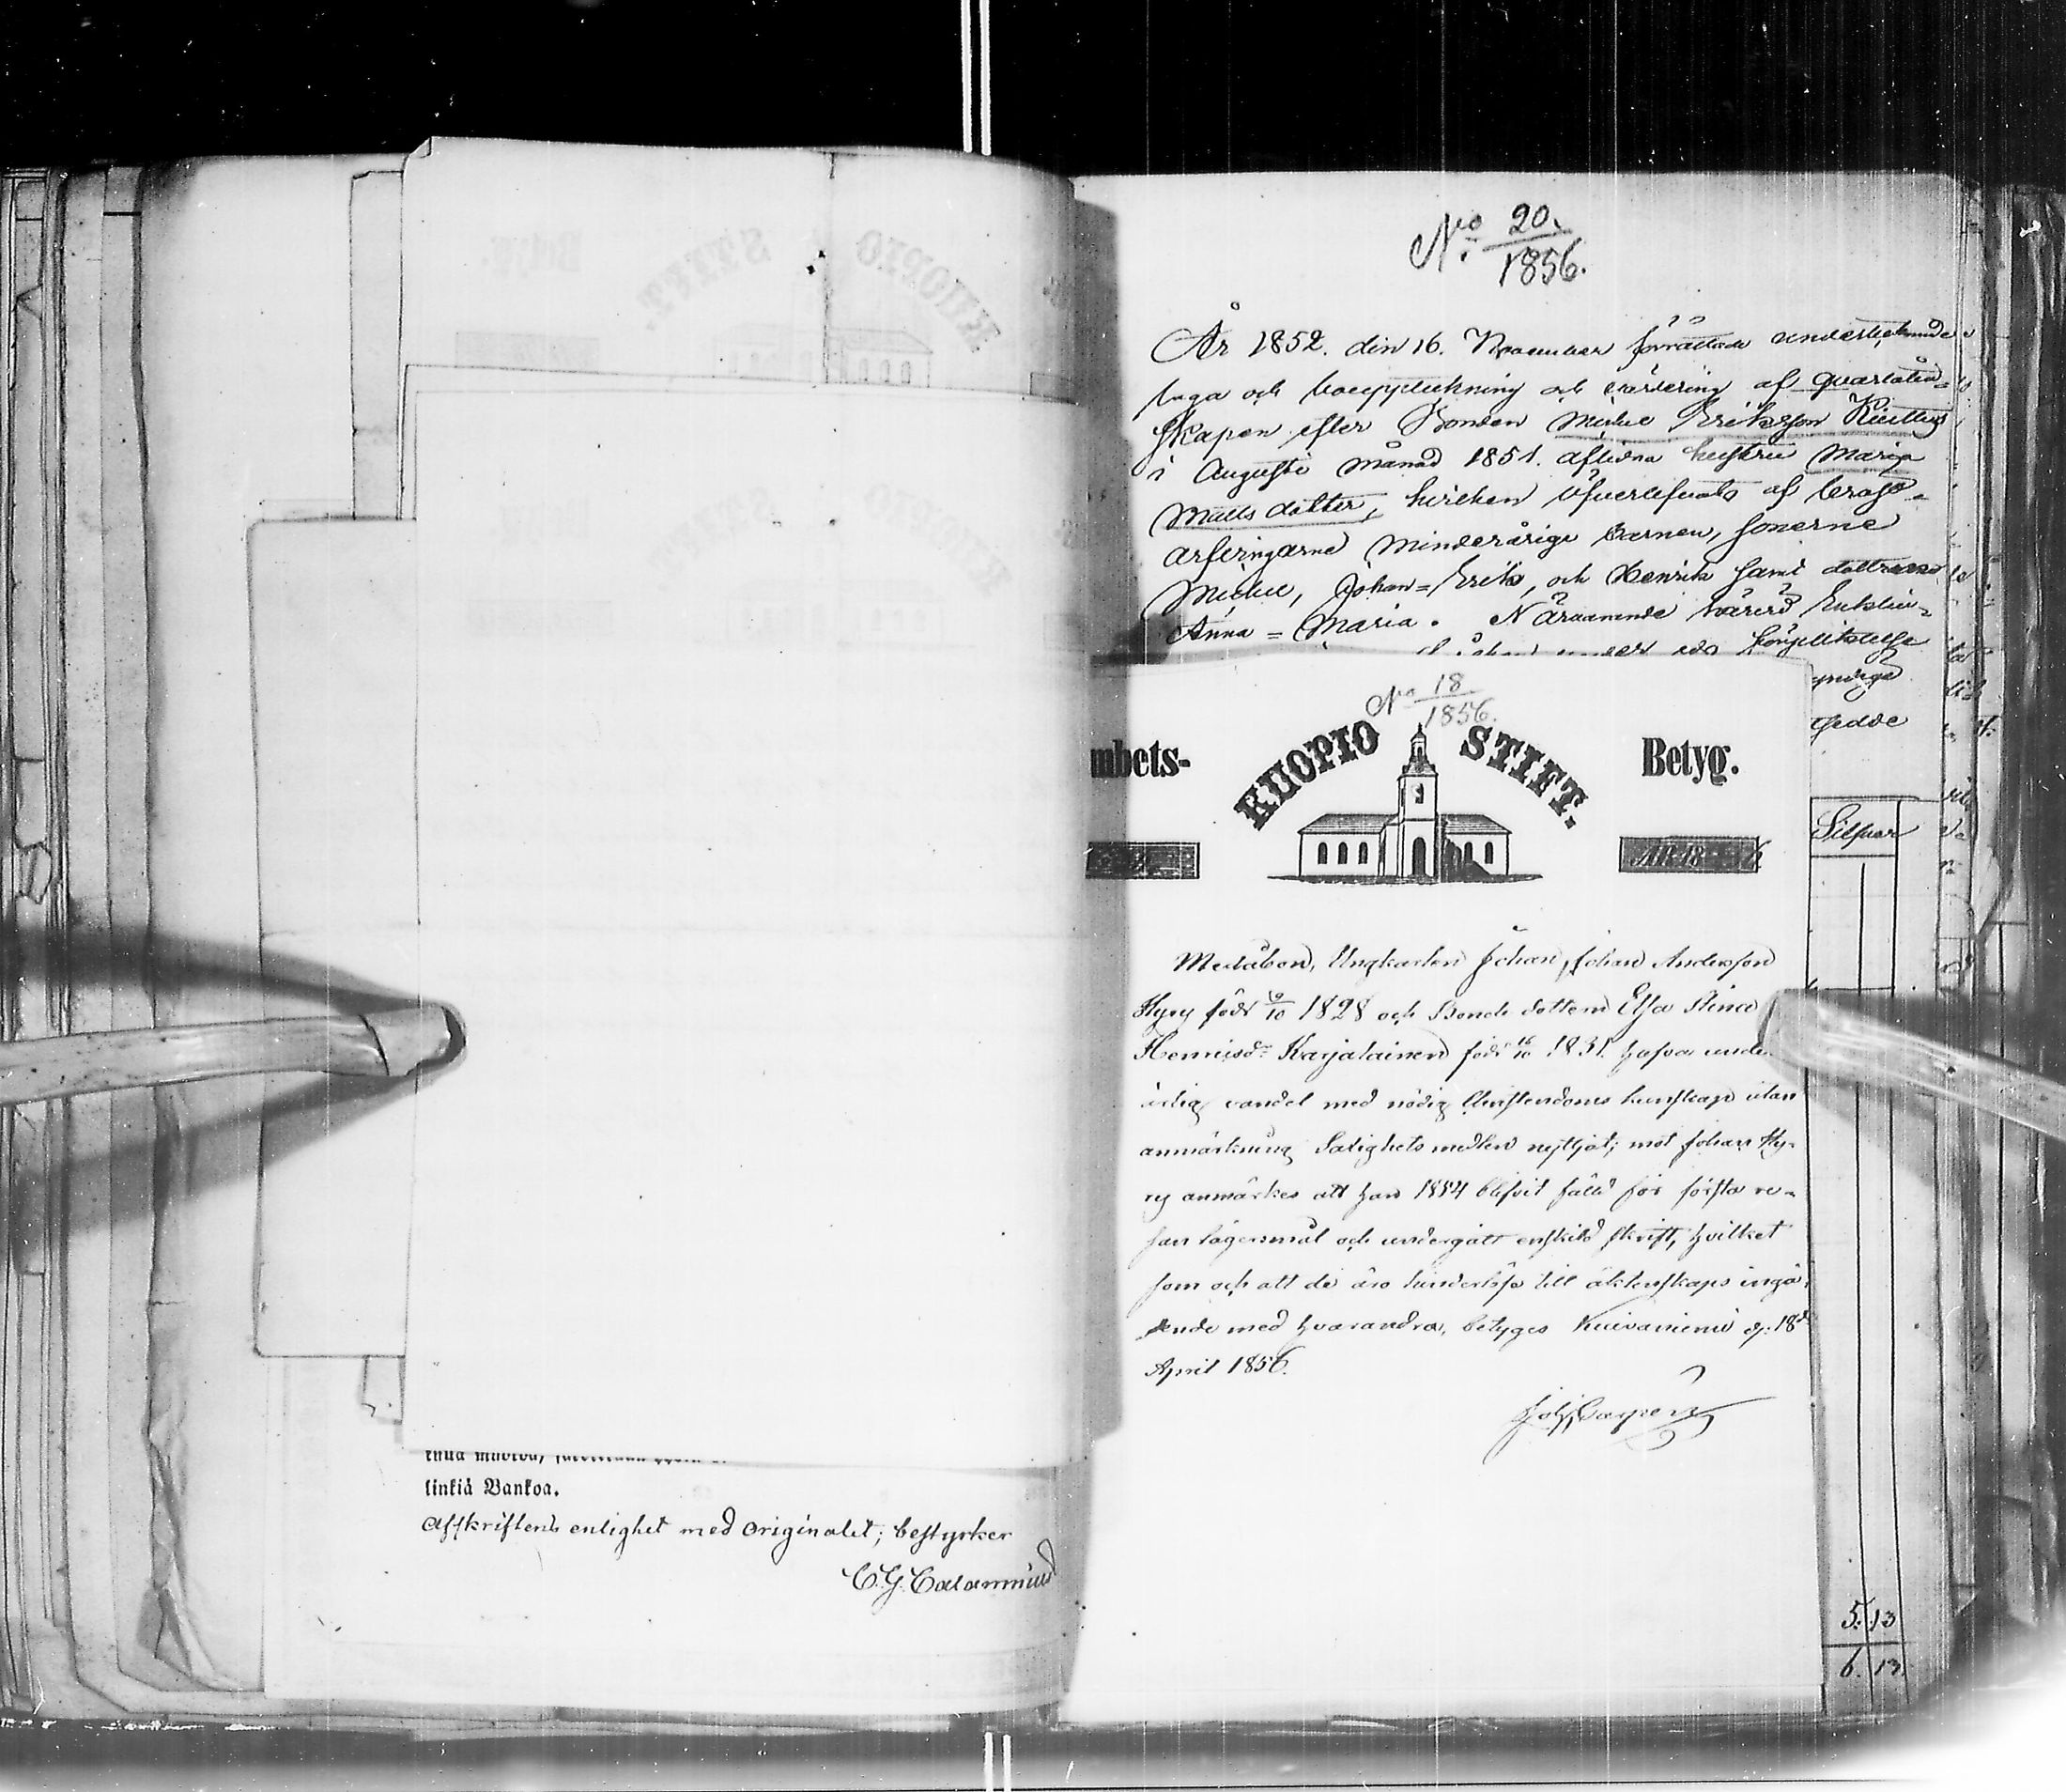 linkiä Bankoa.
Afskriftens enlighet med Originalet; bestyrker
C. G. Calamnius
No 20.
1856.
År 1852. den 16. November förrättade undertecknade
laga och bouppteckning och värdering af qvarlåten-
skapen efter Bonden Michel Eriksson
i Augusti månad 1851. aflidna hustru Maria
Matts dotter, hvilken öfverlefvats af bröst-
arfvingarne Minderårige barnen, sönerne
Michel, Johan=Erik, och Henrik samt dottren
Anna=Maria. Närvarande värd Enklin-
No 18
1856.
mbets-
KUOPIO STIFT.
Betyg.
ÅR 18 6
Silfver
Medåbon, Ungkarlen Johan Johan Andersson
Hyry född 9/10 1828 och Bonde dottern Elsa Stina
Henricsdr Karjalainen född 16/10 1831. hafva under
ärlig vandel med nödig Christendoms kunskap utan
anmärkning Salighets medlen nyttjat; mot Johan Hy-
ry anmärkes att han 1854 blifvit fälld för första re-
san lägersmål och undergått enskild skrift, hvilket
som och att de äro hinderlösa till äktenskaps ingå-
ende med hvarandra, betyges Kuivaniemi d: 18d
April 1856.
5. 13
6. 13